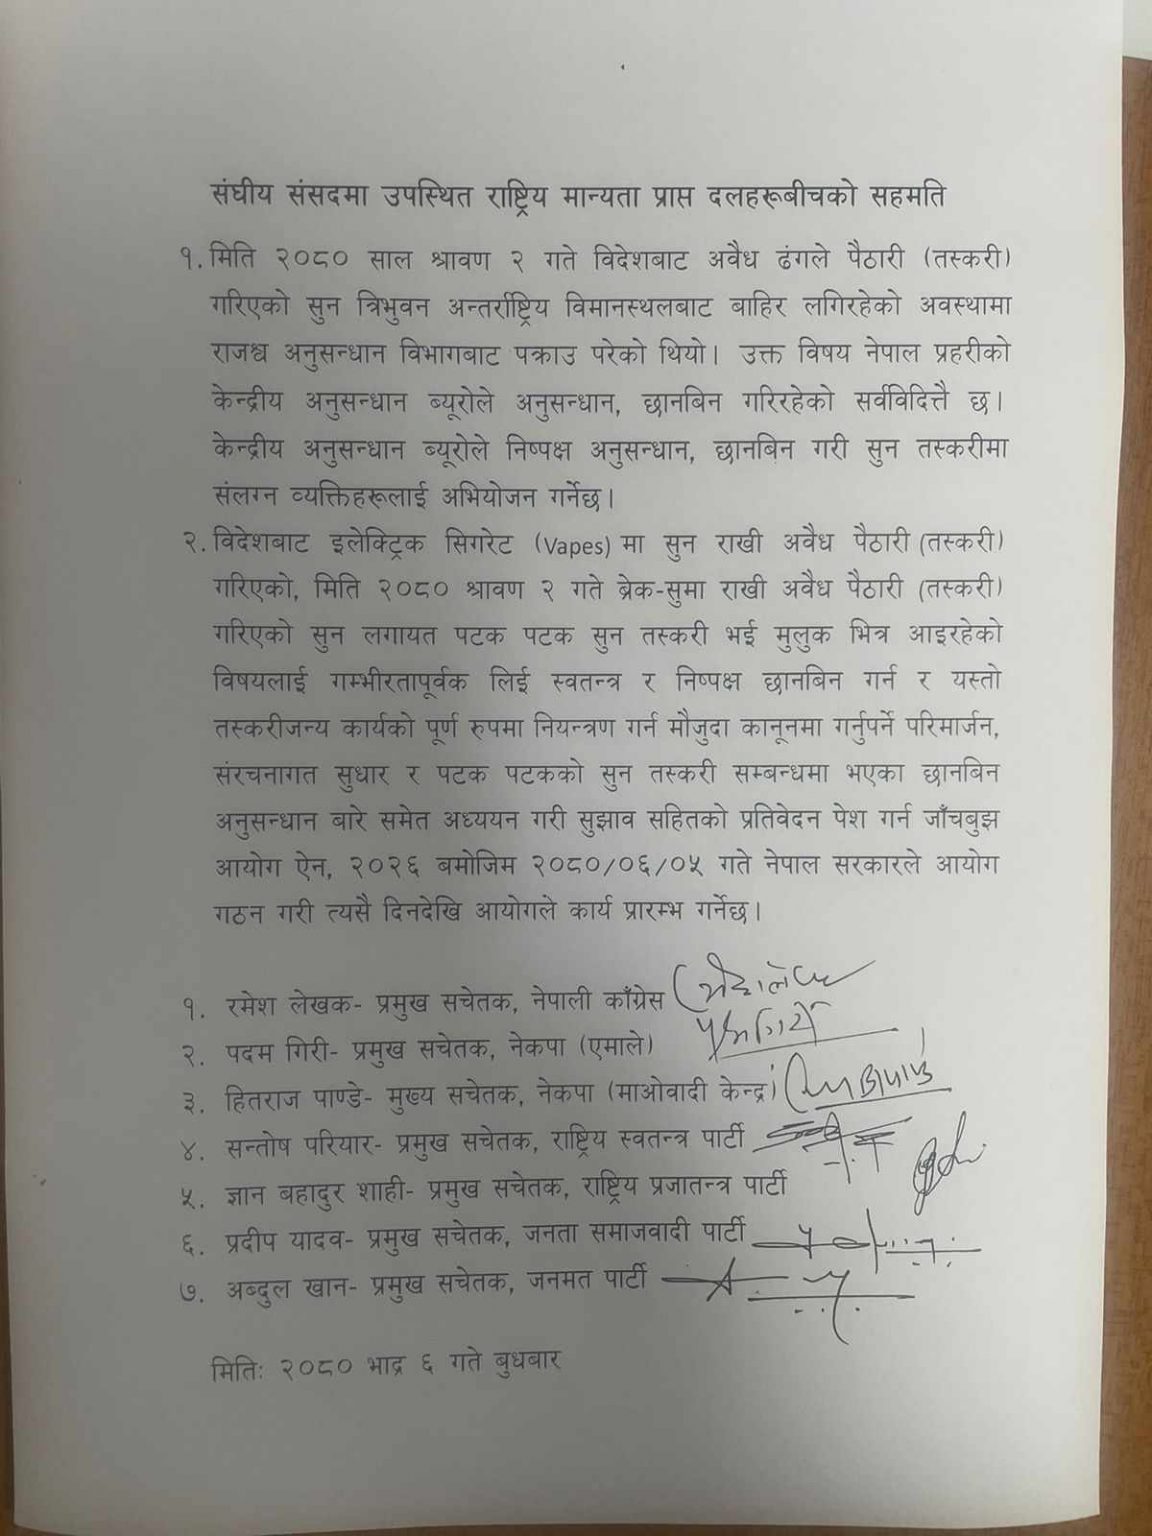 संघीय संसदमा उपस्थित राष्ट्रिय मान्यता प्राप्त दलहरूबीचको सहमति
१. मिति २०८० साल श्रावण २ गते विदेशबाट अवैध ढंगले पैठारी (तस्करी)
गरिएको सुन त्रिभुवन अन्तर्राष्ट्रिय विमानस्थलबाट बाहिर लगिरहेको अवस्थामा
राजश्व अनुसन्धान विभागबाट पक्राउ परेको थियो। उक्त विषय नेपाल प्रहरीको
केन्द्रीय अनुसन्धान ब्यूरोले अनुसन्धान, छानबिन गरिरहेको सर्वविदित्तै छ।
केन्द्रीय अनुसन्धान ब्यूरोले निष्पक्ष अनुसन्धान, छानबिन गरी सुन तस्करीमा
संलग्न व्यक्तिहरूलाई अभियोजन गर्नेछ।
२. विदेशबाट इलेक्ट्रिक सिगरेट (Vapes) मा सुन राखी अवैध पैठारी (तस्करी)
गरिएको, मिति २०८० श्रावण २ गते ब्रेक-सुमा राखी अवैध पैठारी (तस्करी)
गरिएको सुन लगायत पटक पटक सुन तस्करी भई मुलुक भित्र आइरहेको
विषयलाई गम्भीरतापूर्वक लिई स्वतन्त्र र निष्पक्ष छानबिन गर्न र यस्तो
तस्करीजन्य कार्यको पूर्ण रुपमा नियन्त्रण गर्न मौजुदा कानूनमा गर्नुपर्ने परिमार्जन,
संरचनागत सुधार र पटक पटकको सुन तस्करी सम्बन्धमा भएका छानबिन
अनुसन्धान बारे समेत अध्ययन गरी सुझाव सहितको प्रतिवेदन पेश गर्न जाँचबुझ
आयोग ऐन, २०२६ बमोजिम २०८०/०६/०५ गते नेपाल सरकारले आयोग
गठन गरी त्यसै दिनदेखि आयोगले कार्य प्रारम्भ गर्नेछ।
१. रमेश लेखक- प्रमुख सचेतक, नेपाली काँग्रेस
२. पदम गिरी- प्रमुख सचेतक, नेकपा (एमाले)
३. हितराज पाण्डे- मुख्य सचेतक, नेकपा (माओवादी केन्द्र)
४. सन्तोष परियार- प्रमुख सचेतक, राष्ट्रिय स्वतन्त्र पार्टी
५. ज्ञान बहादुर शाही- प्रमुख सचेतक, राष्ट्रिय प्रजातन्त्र पार्टी
६. प्रदीप यादव- प्रमुख सचेतक, जनता समाजवादी पार्टी
७. अब्दुल खान- प्रमुख सचेतक, जनमत पार्टी
मितिः २०८० भाद्र ६ गते बुधबार